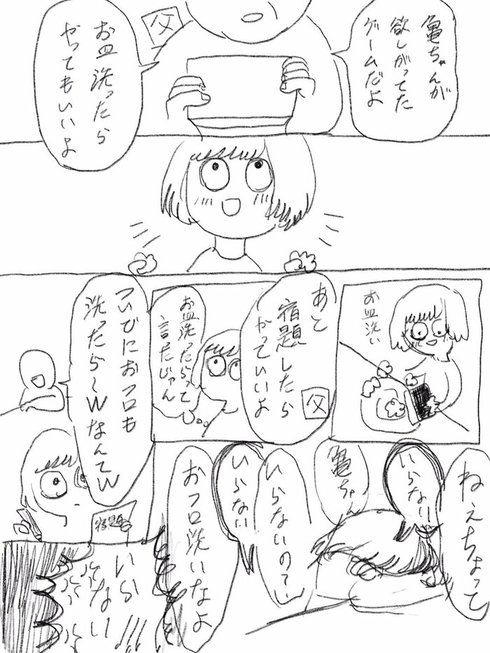 亀ちゃんが
欲しがってた
ゲームだよ
父
お皿洗ったら
やってもいいよ
お皿洗い
あと
宿題したら
やっていいよ
父
お皿洗ったらって
言ったじゃん
ついでにおフロも
洗ったら〜wなんてw
宿題
ねえちょって
いらない
亀ちゃん
いらないのてい
いらない
おフロ洗いなよ
いら
ない